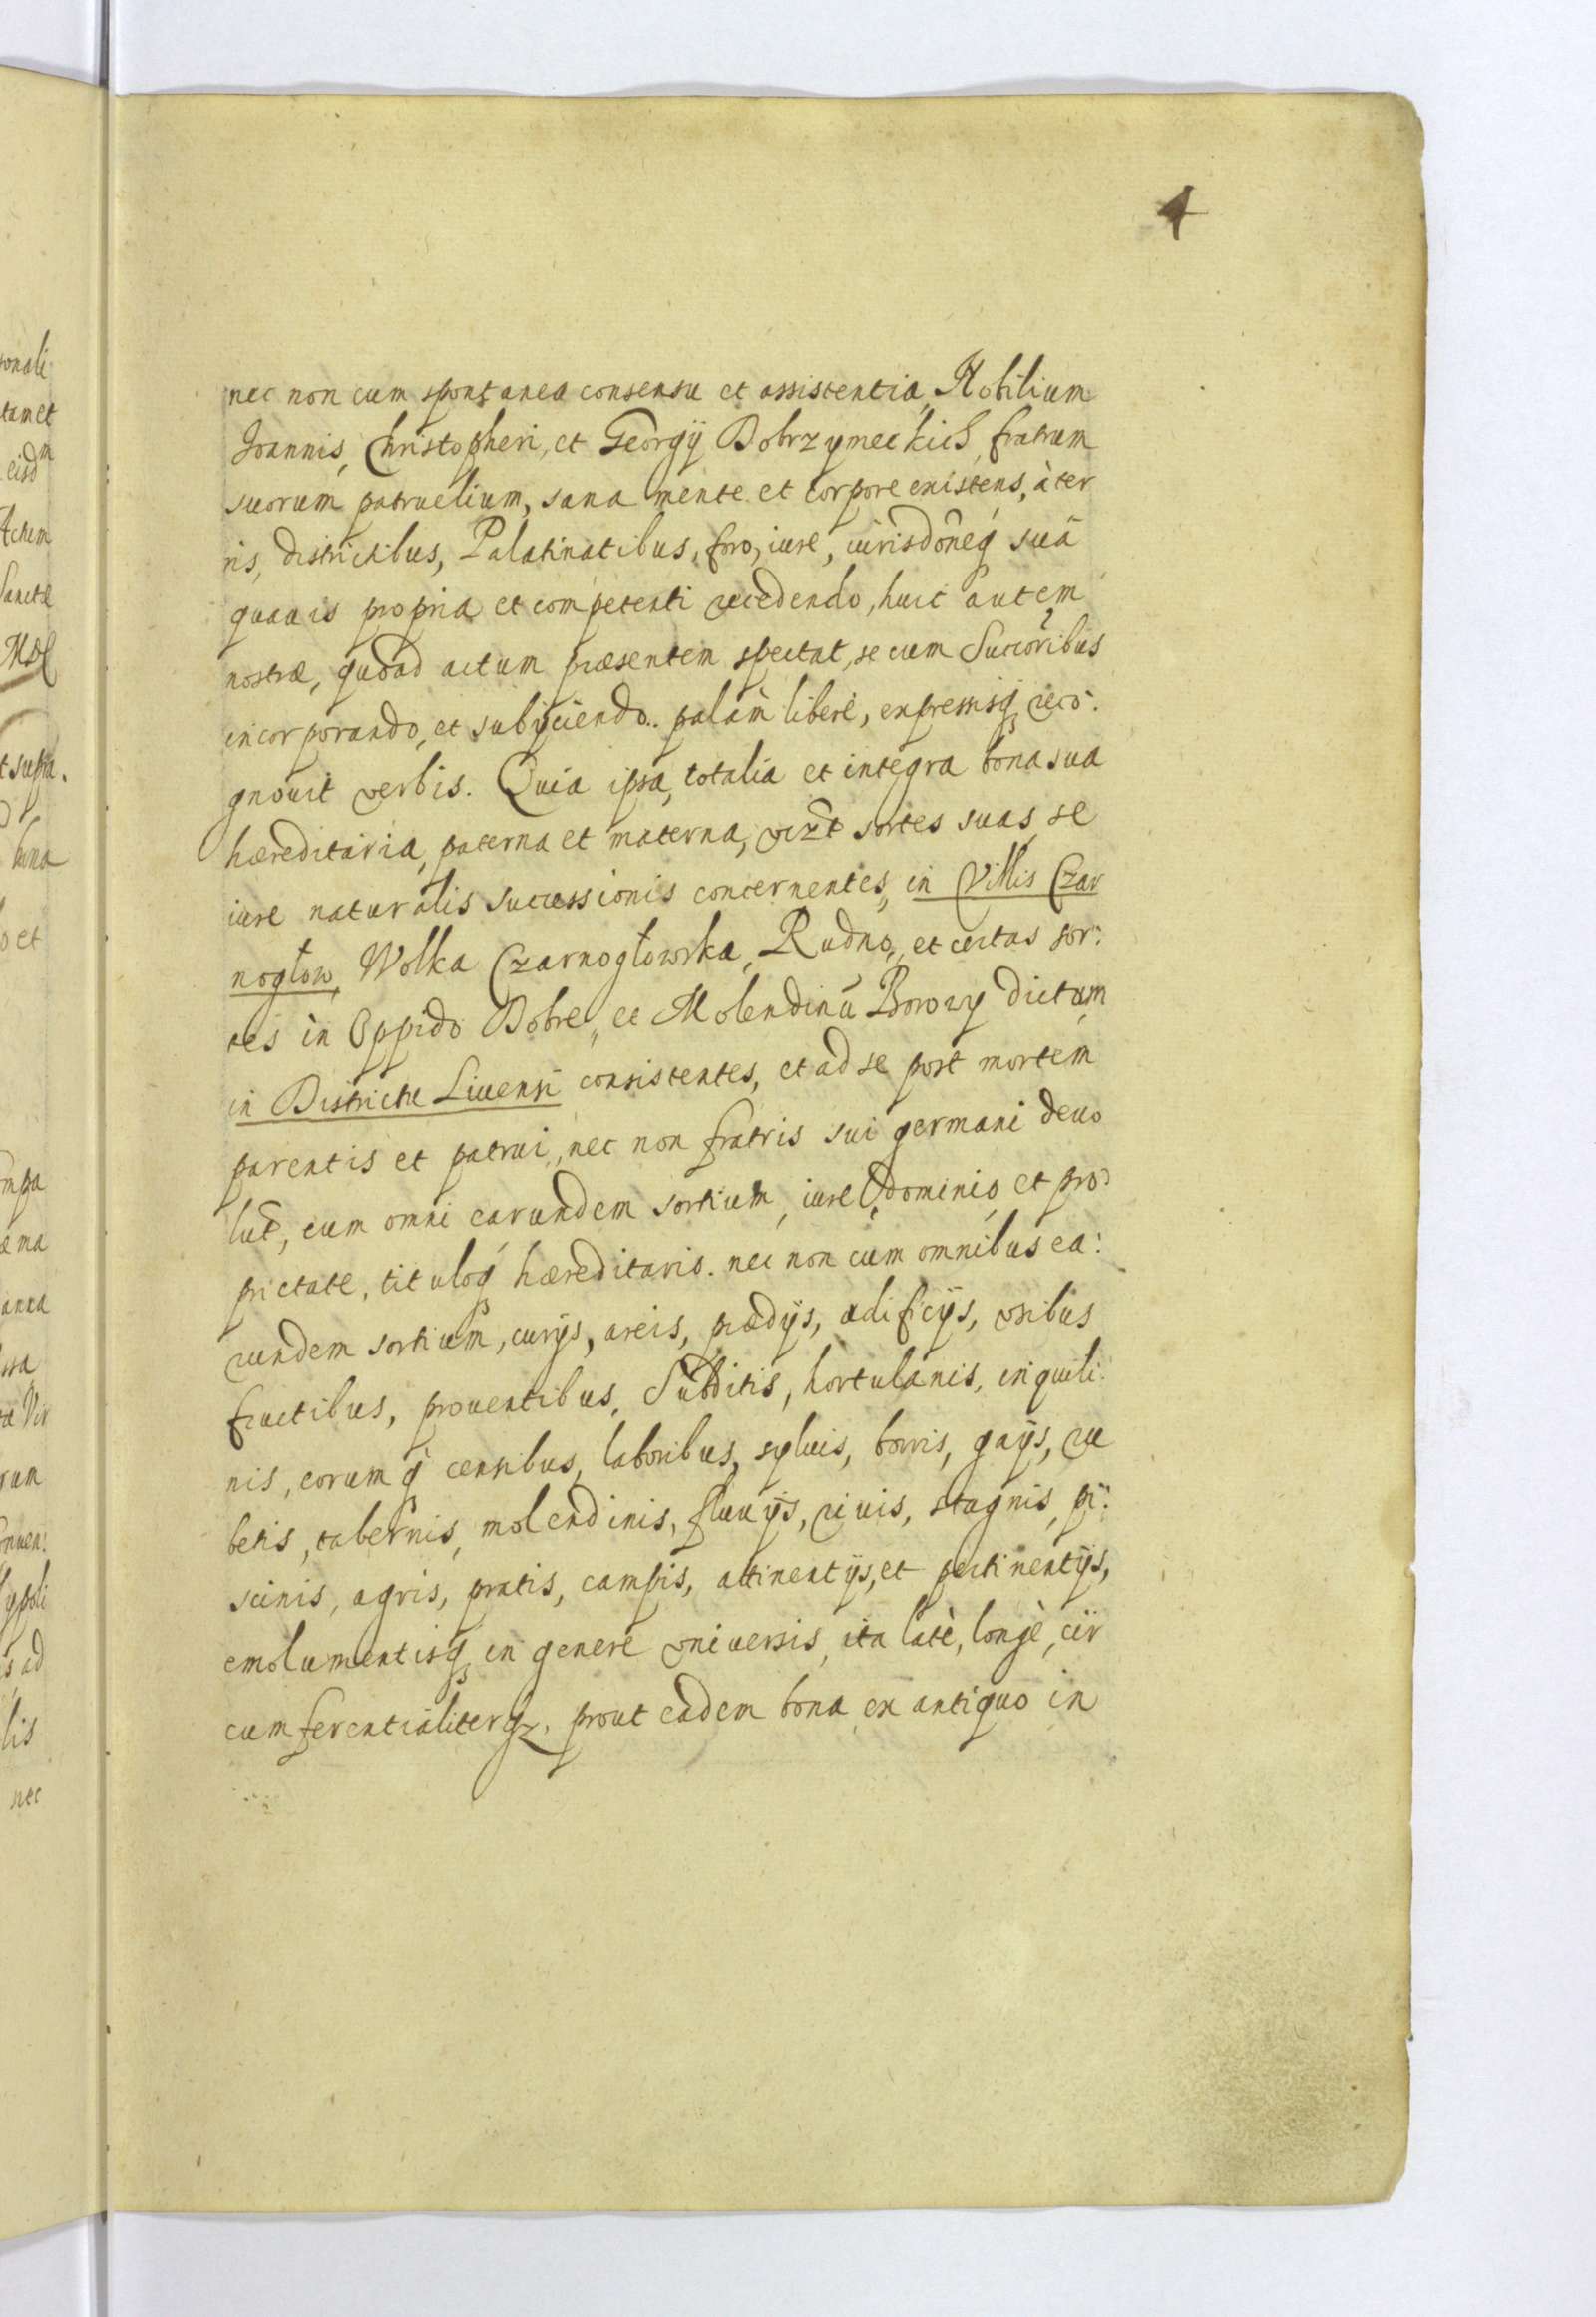 4
nec non cum spontanea consensu et assistentia, Nobilium
Joannis, Christopheri, et Georgÿ Dobrzynieckich, fratrum
suorum patruelium, sana mente et corpore existens, à ter
ris, districtibus, Palatinatibus, foro, iure, iurisdõneq́ suã
quavis propria et competenti recedendo, huic autem
nostræ, quoad actum præsentem spectat, se cum Succõribus
incorporando, et subijciendo. palàm liberè, expressisq́ reco:
gnovit verbis. Quia ipsa, totalia et integra bona sua
hæreditaria, paterna et materna, vizt sortes suas, se
iure naturalis successionis concernentes, in Villis Czar
nogłow, Wolka Czarnogłowska, Rudno, et certas sor:
tes in Oppido Dobre, et Molendinũ Borowy dictum
in Districtu Livensi consistentes, et ad se post mortem
parentis et patrui, nec non fratris sui germani devo
lut, cum omni earundem sortium, iure, dominio, et pro
prietate, tituloq́ hæreditario. nec non cum omnibus ea:
rundem sortium, curÿs, areis, prædÿs, ædificÿs, vsibus
fructibus, proventibus, Subditis, hortulanis, inquili:
nis, eorumq́ censibus, laboribus, sylvis, borris, gaÿs, ru
betis, tabernis, molendinis, fluvÿs, rivis, stagnis, pi:
scinis, agris, pratis, campis, attinentÿs, et pertinentÿs,
emolumentisq́ in genere vniversis, ita latè, longè, cir
cumferentialiterqz, prout eadem bona ex antiquo in